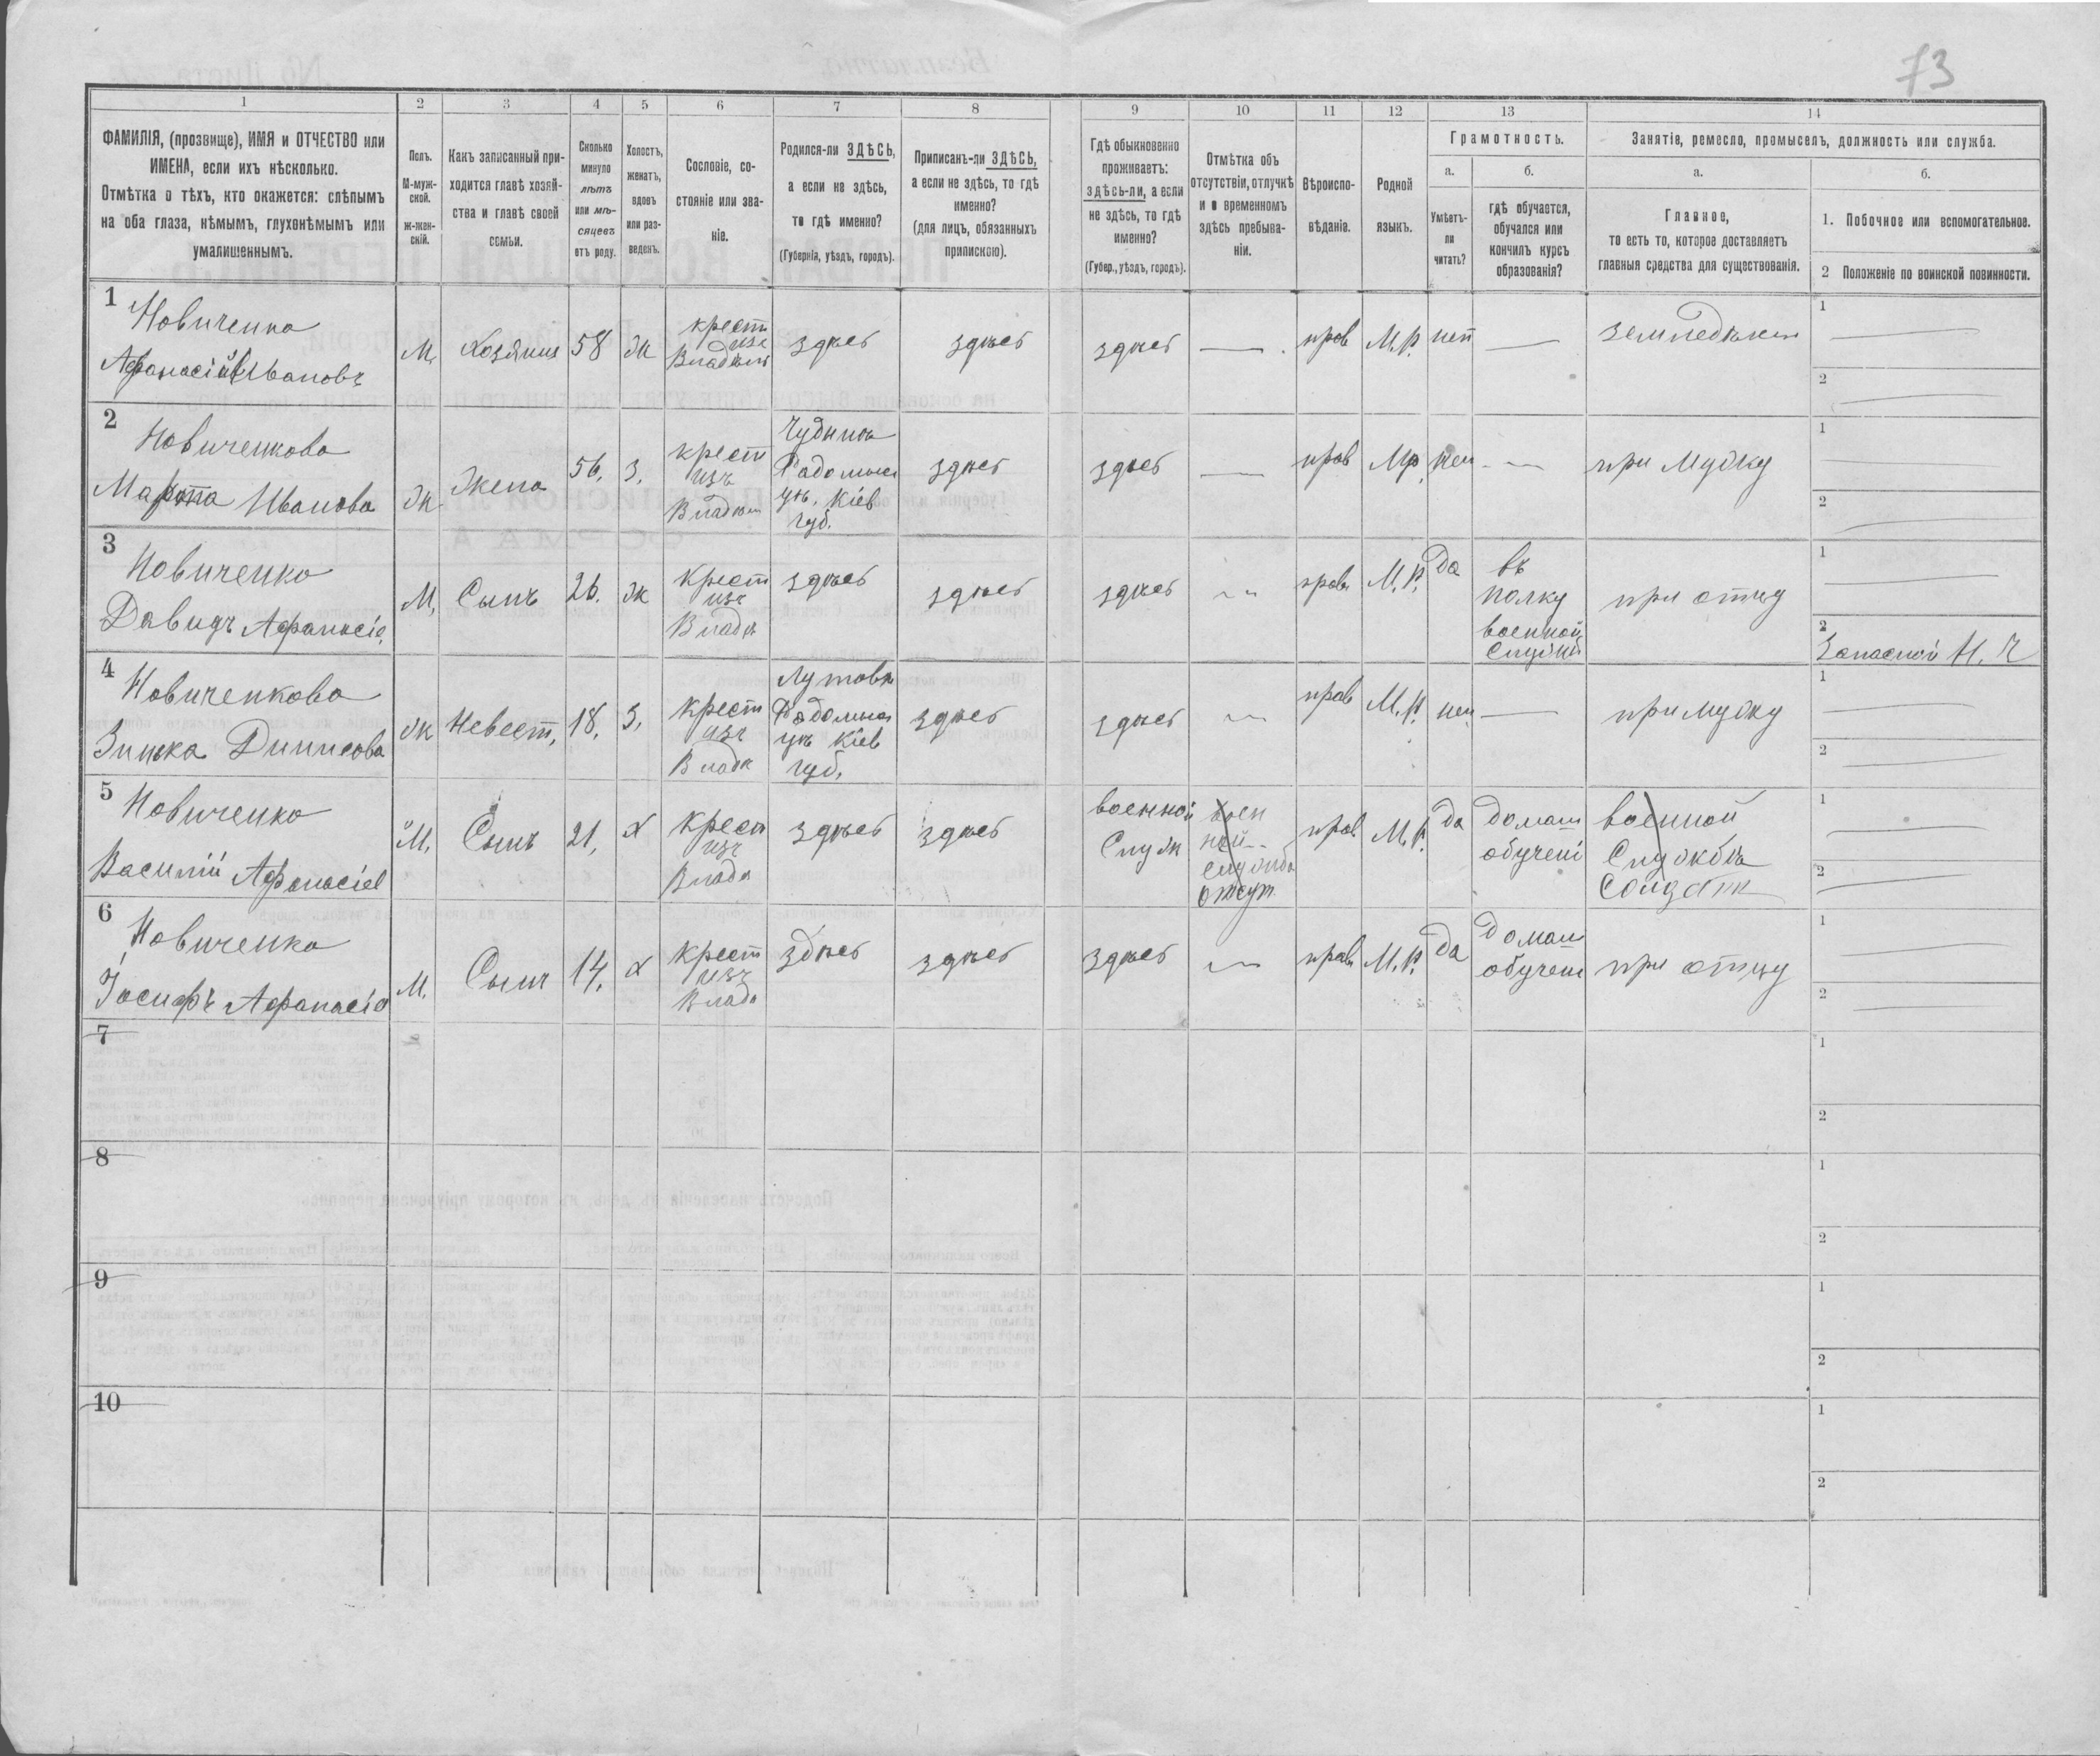 73
1 2 3 4 5 6 7 8 9 10 11 12 13 14
ФАМИЛІЯ, (прозвище), ИМЯ и ОТЧЕСТВО или
ИМЕНА, если ихъ нѣсколько.
Отмѣтка о тѣхъ, кто окажется: слѣпымъ
на оба глаза, нѣмымъ, глухонѣмымъ или
умалишеннымъ.
Полъ.
М-муж-
ской.
ж-жен-
скій.
Какъ записанный при-
ходится главѣ хозяй-
ства и главѣ своей
семьи.
Сколько
минуло
лѣтъ
или мѣ-
сяцевъ
отъ роду.
Холостъ,
женатъ,
вдовъ
или раз-
веденъ.
Сословіе, со-
стояніе или зва-
ніе.
Родился-ли ЗДѢСЬ,
а если не здѣсь,
то гдѣ именно?
(Губернія, уѣздъ, городъ).
Приписанъ-ли ЗДѢСЬ,
а если не здѣсь, то гдѣ
именно?
(для лицъ, обязанныхъ
припискою).
Гдѣ обыкновенно
проживаетъ:
здѣсь-ли, а если
не здѣсь, то гдѣ
именно?
(Губер., уѣздъ, городъ).
Отмѣтка объ
отсутствіи, отлучкѣ
и о временномъ
здѣсь пребыва-
ніи.
Вѣроиспо-
вѣданіе.
Родной
языкъ.
Грамотность.
а.
Умѣетъ-
ли
читать?
б.
гдѣ обучается,
обучался или
кончилъ курсъ
образованія?
Занятіе, ремесло, промыселъ, должность или служба.
а.
Главное,
то есть то, которое доставляетъ
главныя средства для существованія.
б.
1. Побочное или вспомогательное.
2 Положеніе по воинской повинности.
1
Новиченко
Афанасій Ивановъ
М.
Хозяинъ
58
Ж
крест
изъ
Владѣль
здѣсь
здѣсь
здѣсь
—
прав
М.Р.
нет
—
земледѣлец
1
2
2
Новиченкова
Марѳа Иванова
Ж.
Жена
56.
З.
крест
изъ
Владѣл
Чудинъ
Радомысл
уѣ. Кіев
губ.
здѣсь
здѣсь
—
прав
М.Р.
нет
—
при мужу
1
2
3
Новиченко
Давидъ Афанасіе.
М.
Сынъ
26.
Ж
Крест
изъ
Владѣ
здѣсь
здѣсь
здѣсь
—
прав
М.Р.
Да
въ
полку
военной
службы
при отцу
1
2
Запасной Н. Ч
4
Новиченкова
Зинька Динисова
Ж
Невест.
18.
З.
крест
изъ
Владѣ
Лутовка
Радомысл
уѣ Кіев
губ.
здѣсь
здѣсь
—
прав
М.Р.
нет
—
при мужу
1
2
5
Новиченко
Василій Афанасіев
М.
Сынъ
21.
Х
Крест
изъ
Владѣ
здѣсь
здѣсь
военной
Служ
воен
ной
служба
отсут
прав
М.Р.
да
домаш
обучені
военной
Службѣ
Солдатъ
1
2
6
Новиченко
Іосифъ Афанасіе
М.
Сынъ
14.
Х
Крест
изъ
Владѣ
здѣсь
здѣсь
здѣсь
—
прав
М.Р.
да
Домаш
обучені
при отцу
1
2
7
1
2
8
1
2
9
1
2
10
1
2